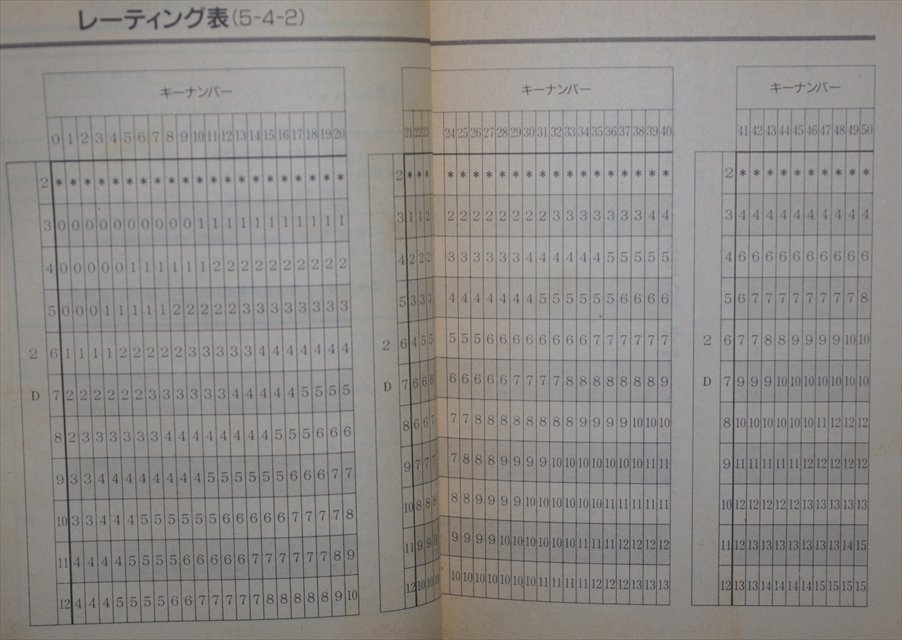 レーティング表(5-4-2)
キーナンバー
0 1 2 3 4 5 6 7 8 9 10 11 12 13 14 15 16 17 18 19 20
2 * * * * * * * * * * * * * * * * * * * * *
3 0 0 0 0 0 0 0 0 0 0 1 1 1 1 1 1 1 1 1 1 1
4 0 0 0 0 0 1 1 1 1 1 1 2 2 2 2 2 2 2 2 2 2
5 0 0 0 1 1 1 1 1 2 2 2 2 2 3 3 3 3 3 3 3 3
2 6 1 1 1 1 2 2 2 2 2 3 3 3 3 3 4 4 4 4 4 4 4
D 7 2 2 2 2 2 2 3 3 3 3 3 3 4 4 4 4 4 5 5 5 5
8 2 3 3 3 3 3 3 4 4 4 4 4 4 4 4 5 5 5 6 6 6
9 3 3 4 4 4 4 4 4 4 5 5 5 5 5 5 5 6 6 6 7 7
10 3 3 4 4 4 5 5 5 5 5 5 6 6 6 6 6 7 7 7 7 8
11 4 4 4 4 5 5 5 5 6 6 6 6 6 7 7 7 7 7 7 8 9
12 4 4 4 5 5 5 5 6 6 7 7 7 7 7 8 8 8 8 8 9 10
キーナンバー
21 22 23 24 25 26 27 28 29 30 31 32 33 34 35 36 37 38 39 40
2 * * * * * * * * * * * * * * * * * * * *
3 1 1 2 2 2 2 2 2 2 2 2 3 3 3 3 3 3 3 4 4
4 2 2 2 3 3 3 3 3 3 4 4 4 4 4 4 5 5 5 5 5
5 3 3 3 4 4 4 4 4 4 4 5 5 5 5 5 5 6 6 6 6
2 6 4 5 5 5 5 5 6 6 6 6 6 6 6 6 7 7 7 7 7 7
D 7 6 6 6 6 6 6 6 6 7 7 7 7 8 8 8 8 8 8 8 9
8 6 6 7 7 7 8 8 8 8 8 8 8 8 9 9 9 9 10 10 10
9 7 7 7 7 8 8 8 9 9 9 9 10 10 10 10 10 10 10 11 11
10 8 8 8 8 8 9 9 9 9 10 10 10 10 10 10 11 11 11 11 11
11 9 9 9 9 9 9 9 10 10 10 10 10 10 11 11 11 12 12 12 12
12 10 10 10 10 10 10 10 10 10 10 11 11 11 11 12 12 12 13 13 13
キーナンバー
41 42 43 44 45 46 47 48 49 50
2 * * * * * * * * * *
3 4 4 4 4 4 4 4 4 4 4
4 6 6 6 6 6 6 6 6 6 6
5 6 7 7 7 7 7 7 7 7 8
2 6 7 7 8 8 9 9 9 9 10 10
D 7 9 9 9 10 10 10 10 10 10 10
8 10 10 10 10 10 10 11 12 12 12
9 11 11 11 11 11 12 12 12 12 12
10 12 12 12 12 12 13 13 13 13 13
11 12 13 13 13 13 13 13 13 14 15
12 13 13 14 14 14 14 15 15 15 15